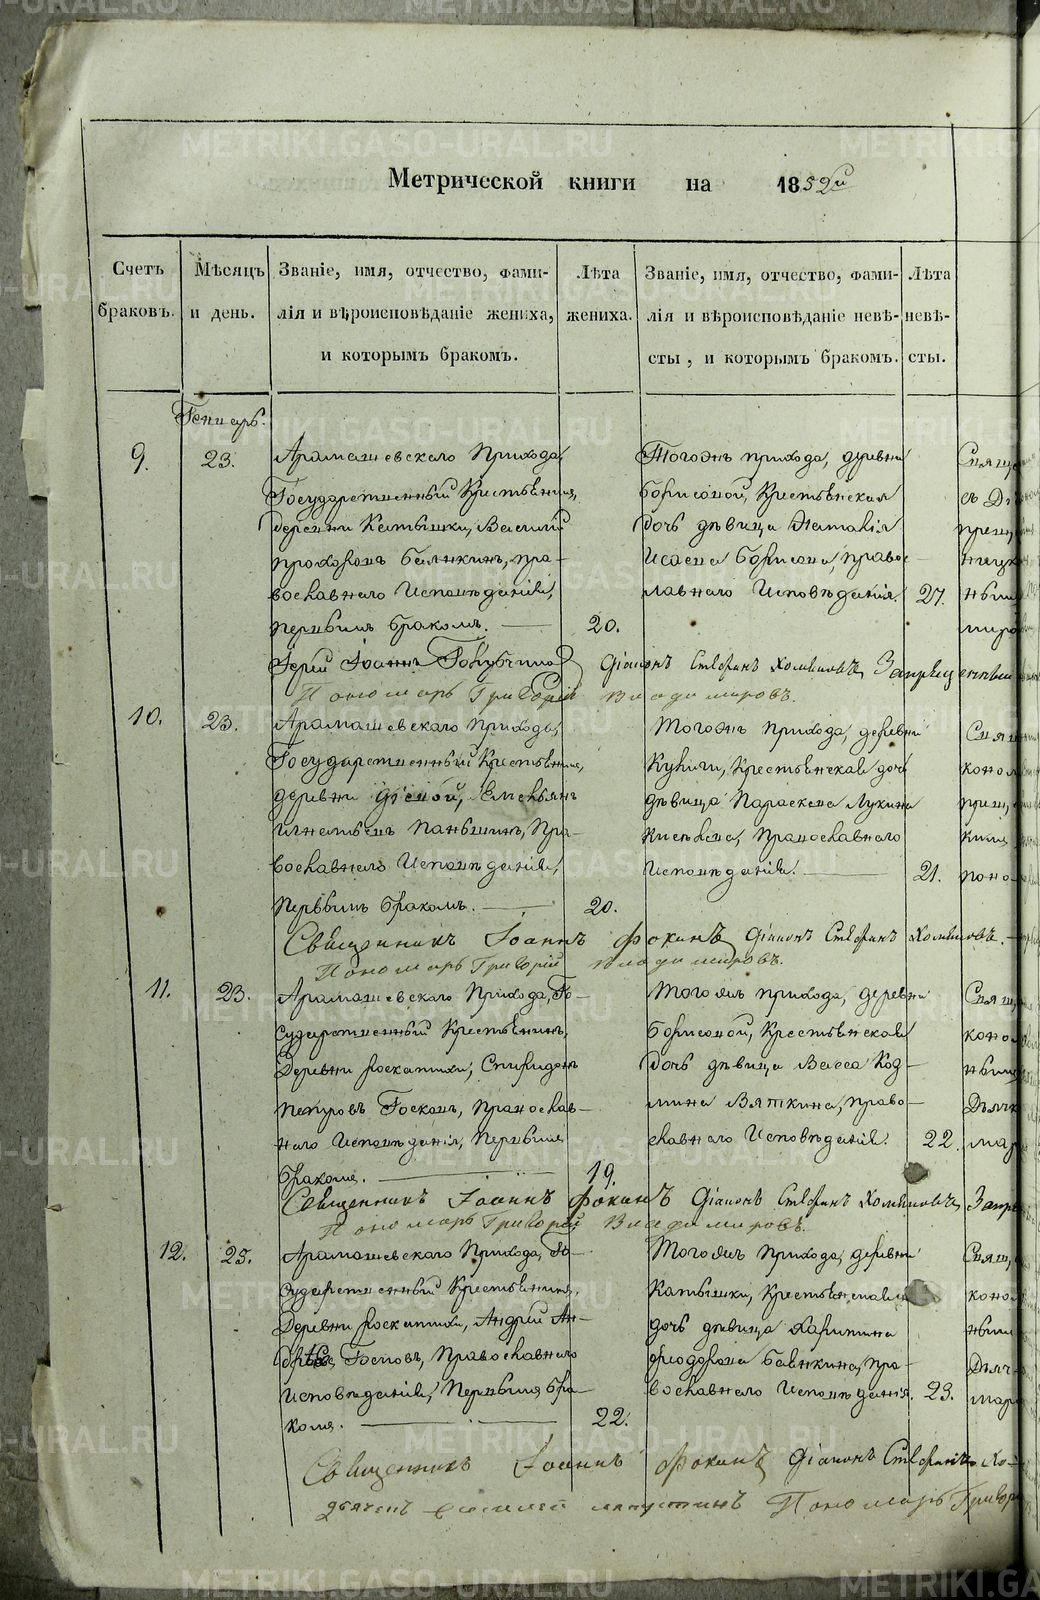 Метрической книги на 1852й
Счетъ браковъ.
Мѣсяцъ и день.
Званіе, имя, отчество, фами-
лія и вѣроисповѣданіе жениха,
и которымъ бракомъ.
Лѣта жениха.
Званіе, имя, отчество, фами-
лія и вѣроисповѣданіе невѣ-
сты, и которымъ бракомъ.
Лѣта невѣ-
сты.
Генварь.
9.
23.
Арамашевскаго Прихода,
Государственный Крестьянинъ,
деревни Катышки, Василій
Прохоровъ Бавыкинъ, пра-
вославнаго Исповѣданія,
первымъ бракомъ.
20.
Тогожъ прихода, деревни
Борисовой, Крестьянская
дочь дѣвица Наталія
Исаева Борисова, право-
славнаго Исповѣданія.
27.
Іерей Іоаннъ Діаконъ Стефанъ Хомяковъ
Пономарь Григорій Владимировъ.
10.
23.
Арамашевскаго Прихода,
Государственный Крестьянинъ,
деревни Емельянъ
Игнатьевъ Паньшинъ, Пра-
вославнаго Исповѣданія,
Первымъ бракомъ.
20.
Тогожъ Прихода, деревни
Крестьянская дочь
дѣвица Параскева Лукина
Православнаго
Исповѣданія.
21.
Священникъ Іоаннъ Фокинъ Діаконъ Стефанъ Хомяковъ.
Пономарь Григорій Владимировъ.
11.
23.
Арамашевскаго Прихода, Го-
сударственный Крестьянинъ,
Деревни Роскатихи, Спиридонъ
Петровъ Госковъ, Православ-
наго Исповѣданія, Первымъ
бракомъ.
19.
Тогожъ прихода, деревни
Борисовой, Крестьянская
дочь дѣвица Васса Коз-
мина Вяткина, Право-
славнаго Исповѣданія.
22.
Священникъ Іоаннъ Фокинъ Діаконъ Стефанъ Хомяковъ
Пономарь Григорій Владимировъ.
12.
25.
Арамашевскаго Прихода, Го-
сударственный Крестьянинъ,
Деревни Роскатихи, Андрей Ан-
Госковъ, Православнаго
Исповѣданія, Первымъ бра-
комъ.
22.
Тогожъ Прихода, деревни
Катышки, Крестьянская
дочь дѣвица Харитина
Ѳеодорова Бавыкина, пра-
вославнаго Исповѣданія.
23.
Священникъ Іоаннъ Фокинъ Діаконъ Стефанъ Хо-
Пономарь Григор
METRIKI.GASO-URAL.RU